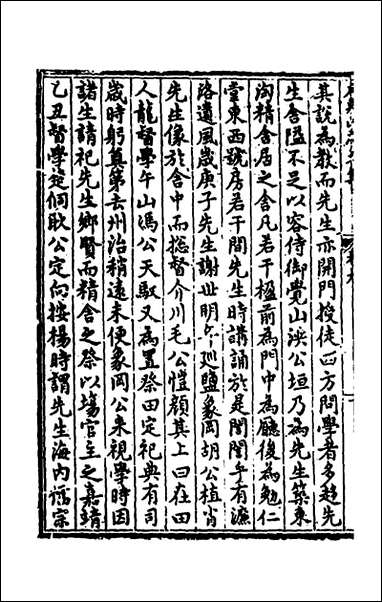 其說為教而先生亦開門授徒四方問學者多趨先
生舍隘不足以容侍御覺山洪公垣乃為先生築東
淘精舍居之舍凡若干楹前為門中為廳後為勉仁
堂東西號房若干間先生時講誦於是誾誾乎有濂
洛遺風歲庚子先生謝世明年巡鹽象岡胡公植肖
先生像於舍中而總督介川毛公愷顏其上曰在田
人龍督學午山馮公天馭又為置祭田定祀典有司
歲時躬奠第去州治稍遠未便象岡公來視學時因
諸生請祀先生鄉賢而精舍之祭以塲官主之嘉靖
乙丑督學楚侗耿公定向按楊時謂先生海内儒宗